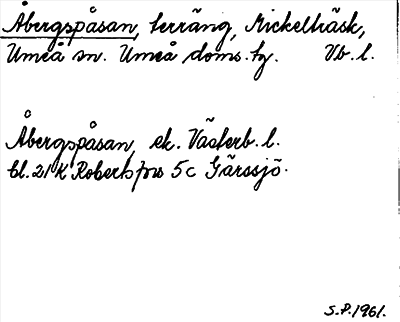 Åbergspåsan, terräng, Mickelträsk,
Umeå sn. Umeå doms.tg. Vb.l.
Åbergspåsan, ek. Västerb.l.
bl. 21K Robertsfors 5c Gärssjö.
S.P. 1961.